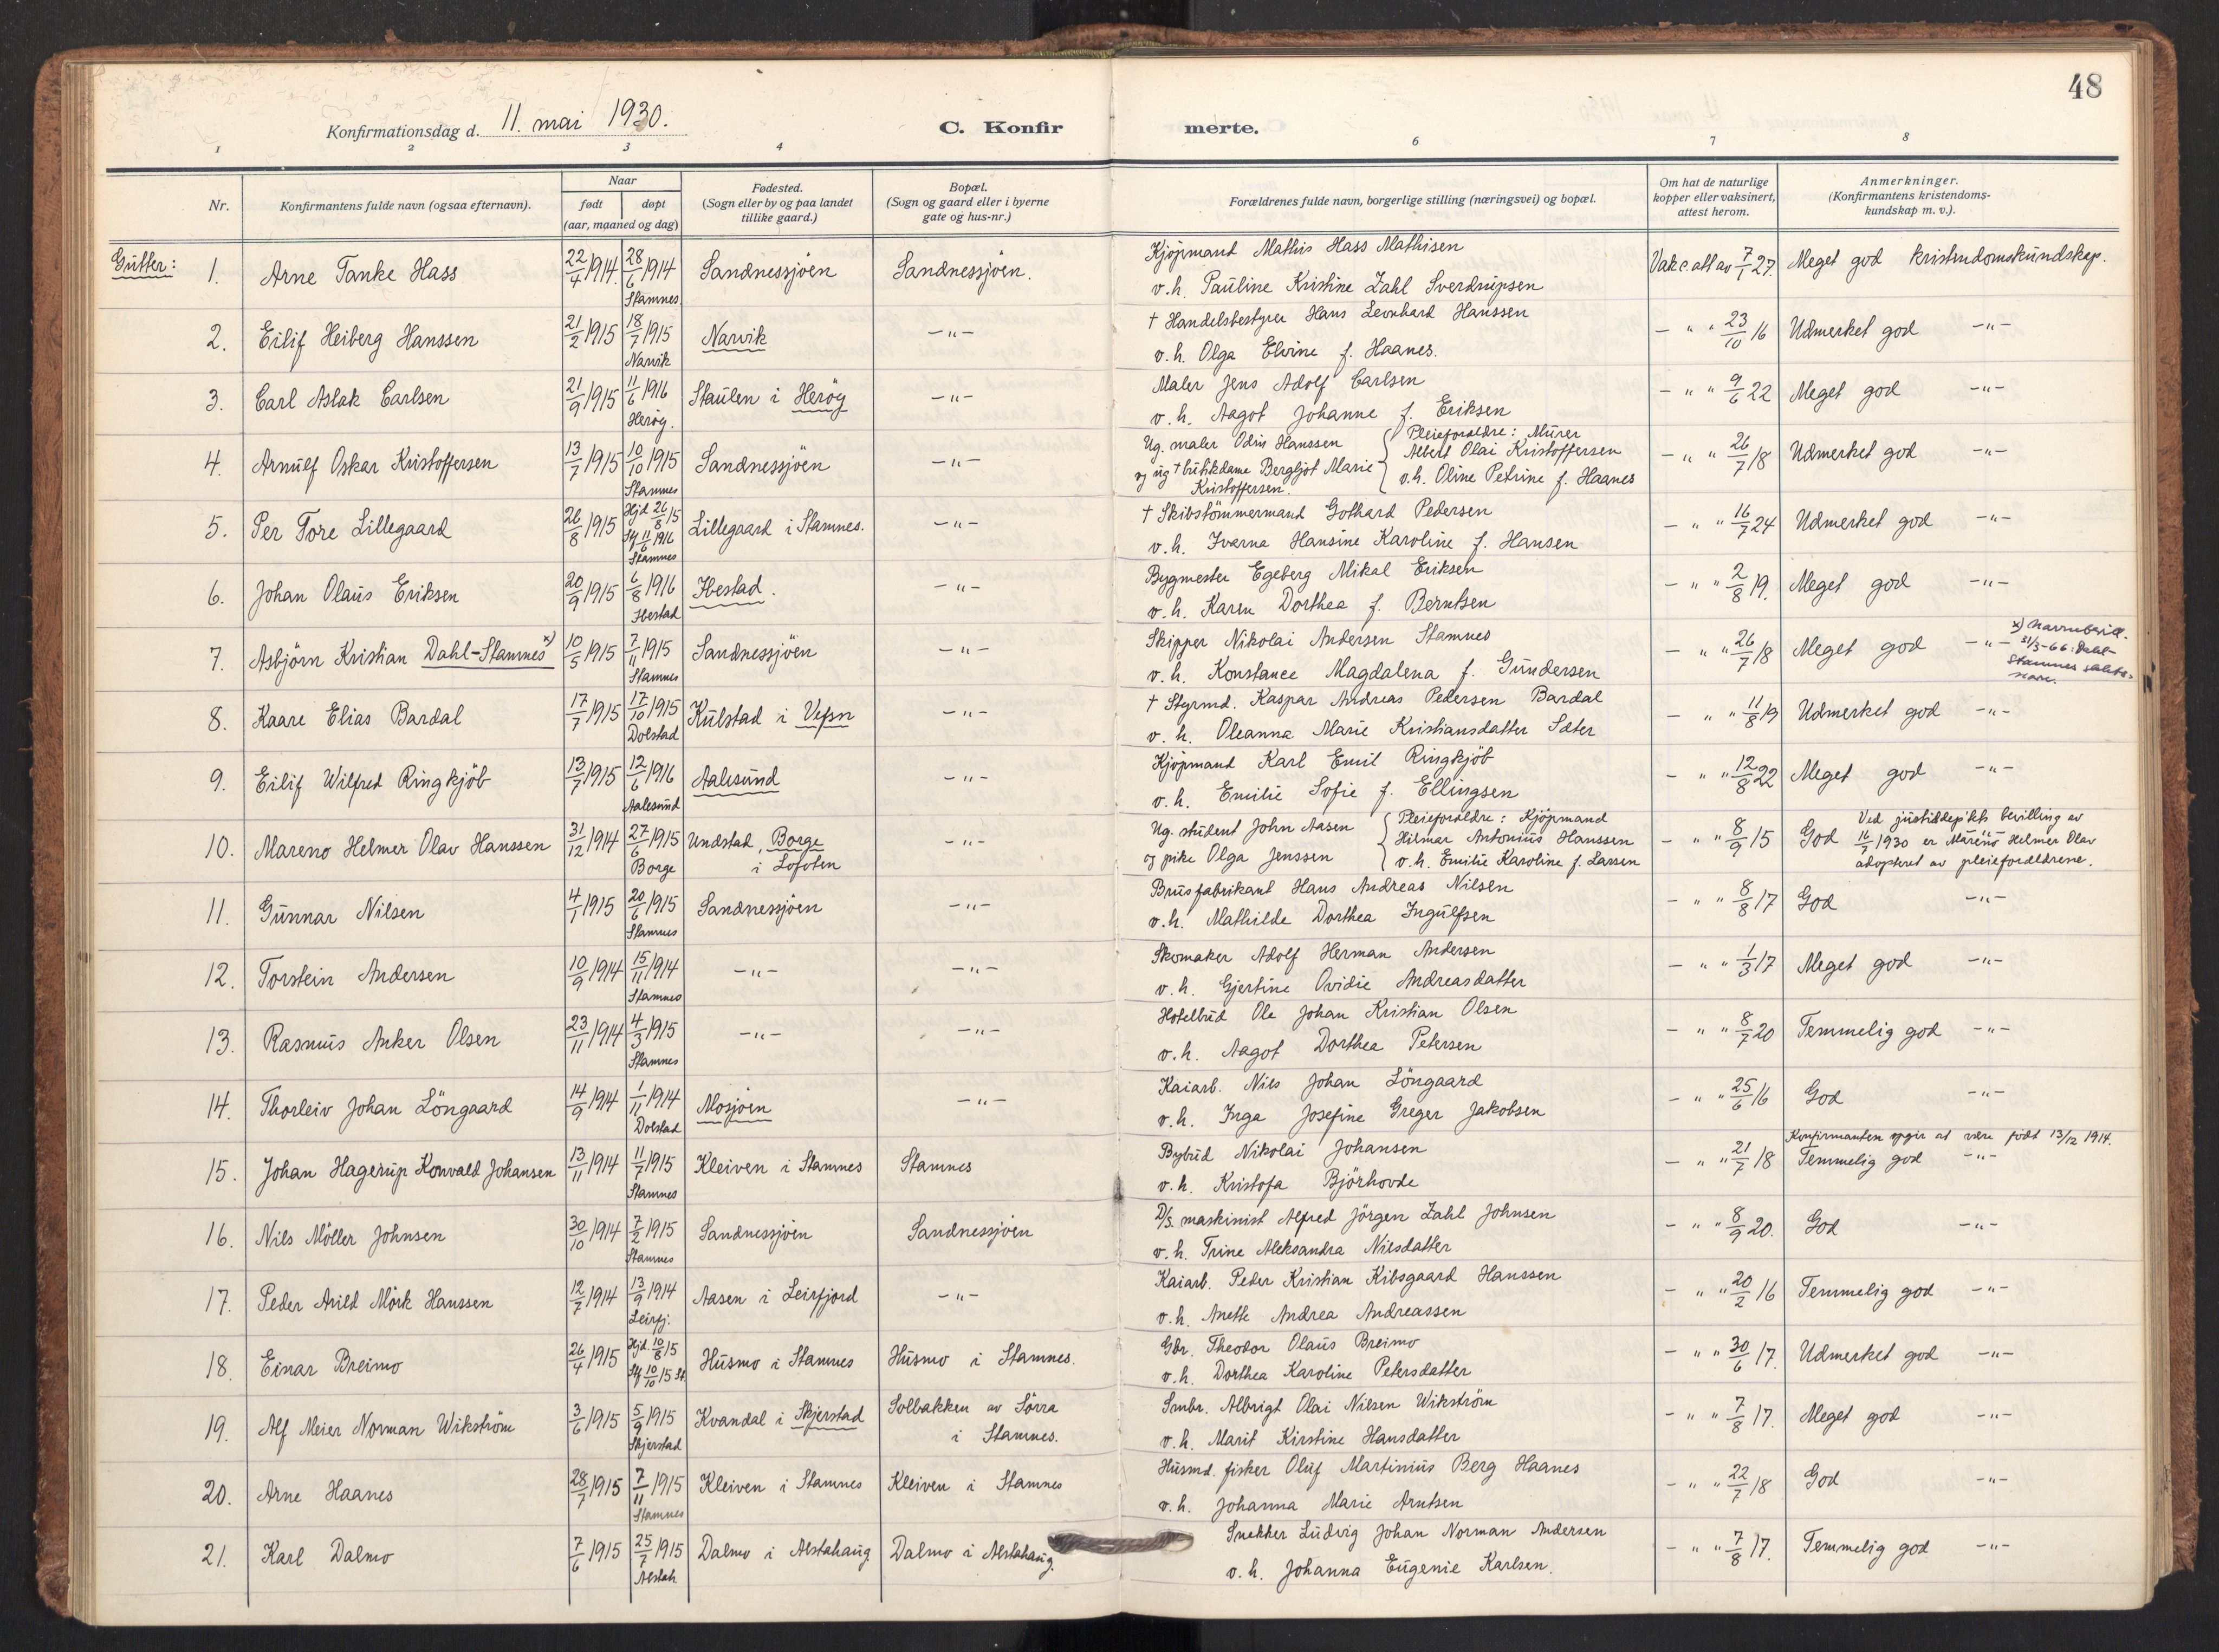 48
Konfirmationsdag d. 11. mai 1930.
C. Konfirmerte.
1 2 3 4 6 7 8
Nr.
Konfirmantens fulde navn (ogsaa efternavn).
Naar
født døpt
(aar, maaned og dag)
Fødested.
(Sogn eller by og paa landet
tillike gaard.)
Bopæl.
(Sogn og gaard eller i byerne
gate og hus-nr.)
Forældrenes fulde navn, borgerlige stilling (næringsvei) og bopæl.
Om hat de naturlige
kopper eller vaksinert,
attest herom.
Anmerkninger.
(Konfirmantens kristendoms-
kundskap m. v.).
Gutter:
1. Arne Tanke Hass 22/4 1914. 28/6 1914 Sandnessjöen Sandnessjöen. Kjöpmand Mathis Hass Mathisen Vakc att av 7/1 27. Meget god kristendomskundskap.
Stamnes v.h. Pauline Kristine Zahl Sverdrupsen
2. Eilif Heiberg Hanssen 21/2 1915 18/7 1915 Narvik -"- † Handelsbestyrer Hans Leonhard Hanssen - " " 23/10 16 Udmerket god -"-
Narvik v.h. Olga Elvine f. Haanes.
3. Carl Aslak Carlsen 21/9 1915 11/6 1916 Staulen i Heröy -"- Maler Jens Adolf Carlsen - " " 9/6 22 Meget god -"-
Heröy. v.h. Aagot Johanne f. Eriksen
4. Arnulf Oskar Kristoffersen 13/7 1915 10/10 1915 Sandnessjöen -"- Ug. maler Odin Hanssen { Pleieforældre: Murer - " " 26/7 18 Udmerket god -"-
og ug † butikdame Bergljot Marie Albert Olai Kristoffersen
Stamnes Kristoffersen. v.h. Oline Petrine f. Haanes
5. Per Tore Lillegaard 26/8 1915 Hjd 26/8 15 Lillegaard i Stamnes. -"- † Skibstömmermand Gothard Pedersen - " " 16/7 24 Udmerket god -"-
St 11/6 1916
Stamnes v.h. Ivarna Hansine Karoline f. Hansen
6. Johan Olaus Eriksen 20/9 1915 6/8 1916 Ibestad. -"- Bygmester Egeberg Mikal Eriksen - " " 2/8 19. Meget god -"-
Ibestad v.h. Karen Dorthea f. Berntsen
7. Asbjörn Kristian Dahl-Stamnes x) 10/5 1915 7/11 1915 Sandnessjöen -"- Skipper Nikolai Andersen Stamnes - " " 26/7 18 Meget god -"- x) Navnebevill.
31/3-66: Dahl-
Stamnes slekts-
navn.
Stamnes v.h. Konstance Magdalena f. Gundersen
8. Kaare Elias Bardal 17/7 1915 17/10 1915 Kulstad i Vefsn -"- † Styrmd. Kaspar Andreas Pedersen Bardal - " " 11/8 19 Udmerket god -"-
Dolstad v. h. Oleanna Marie Kristiansdatter Sæter
9. Eilif Wilfred Ringkjöb 13/7 1915 12/6 1916 Aalesund -"- Kjöpmand Karl Emil Ringkjöb - " " 12/8 22 Meget god -"-
Aalesund v.h. Emilie Sofie f. Ellingsen
10. Mareno Helmer Olav Hanssen 31/12 1914 27/6 1915 Undstad, Borge -"- Ug. student John Aasen { Pleieforældre: Kjöpmand - " " 8/9 15 God Ved justisdep'kts bevilling av
Borge i Lofoten og pike Olga Jenssen Hilmar Antonius Hanssen 16/7 1930 er Mareno Helmer Olav
v.h. Emilie Karoline f. Larsen adopteret av pleieforældrene.
11. Gunnar Nilsen 4/1 1915 20/6 1915 Sandnessjöen -"- Brusfabrikant Hans Andreas Nilsen - " " 8/8 17 God -"-
Stamnes v.h. Mathilde Dorthea Ingulfsen
12. Torstein Andersen 10/9 1914 15/11 1914 -"- -"- Skomaker Adolf Herman Andersen - " " 1/3 17 Meget god -"-
Stamnes v.h. Gjertine Ovidie Andreasdatter
13. Rasmus Anker Olsen 23/11 1914 4/3 1915 -"- -"- Hotelbud Ole Johan Kristian Olsen - " " 8/7 20 Temmelig god -"-
Stamnes v.h. Aagot Dorthea Petersen
14. Thorleiv Johan Löngaard 14/9 1914 1/11 1914 Mosjöen -"- Kaiarb. Nils Johan Löngaard - " " 25/6 16 God -"-
Dolstad v.h. Inga Josefine Greger Jakobsen
Konfirmanten opgir at være født 13/12 1914.
15. Johan Hagerup Konvald Johansen 13/11 1914 11/7 1915 Kleiven i Stamnes Stamnes Bybud Nikolai Johansen - " " 21/7 18 Temmelig god -"-
Stamnes v.h. Kristofa Björhovde
16. Nils Möller Johnsen 30/10 1914 7/2 1915 Sandnessjöen Sandnessjöen D/S. maskinist Alfred Jörgen Zahl Johnsen - " " 8/9 20. God -"-
Stamnes v.h. Trine Aleksandra Nilsdatter
17. Peder Arild Mörk Hanssen 12/7 1914 13/9 1914 Aasen i Leirfjord -"- Kaiarb. Peder Kristian Kibsgaard Hanssen - " " 20/2 16 Temmelig god -"-
Leirfj. v.h. Anette Andrea Andreassen
18. Einar Breimo 26/4 1915 Hjd. 10/8 15 Husmo i Stamnes Husmo i Stamnes. Gbr. Theodor Olaus Breimo - " " 30/6 17. Udmerket god -"-
St 10/10 15 St. v.h. Dorthea Karoline Petersdatter
19. Alf Meier Norman Wikström 3/6 1915 5/9 1915 Kvandal i Skjerstad Solbakken av Sörra Smbr. Albrigt Olai Nilsen Wikström - " " 7/8 17. Meget god -"-
Skjerstad i Stamnes. v.h. Marit Kirstine Hansdatter
20. Arne Haanes 28/7 1915 7/11 1915 Kleiven i Stamnes Kleiven i Stamnes Husmd. fisker Oluf Martinius Berg Haanes - " " 22/7 18 God -"-
Stamnes v.h. Johanna Marie Arntsen
21. Karl Dalmo 7/6 1915 25/7 1915 Dalmo i Alstahaug Dalmo i Alstahaug. Snekker Ludvig Johan Norman Andersen - " " 7/8 17. Temmelig god -"-
Alstah v.h. Johanna Eugenie Karlsen.